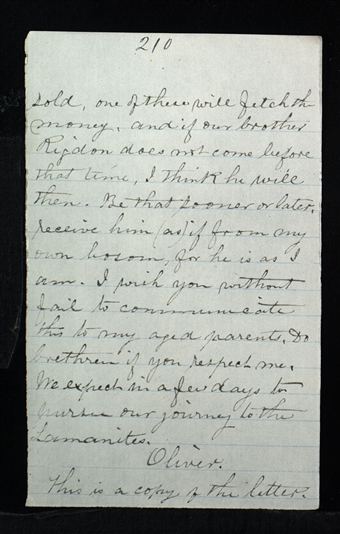 210
sold, one of these will fetch the
money, and if our brother
Rigdon does not come before
that time, I think he will
then. Be that sooner or later,
receive him (as) if from my
own bosom, for he is as I
am. I wish you without
fail to communicate
this to my aged parents. Do
brethren if you respect me.
We expect in a few days to
pursue our journey to the
Lamanites.
Oliver.
This is a copy of the letter.